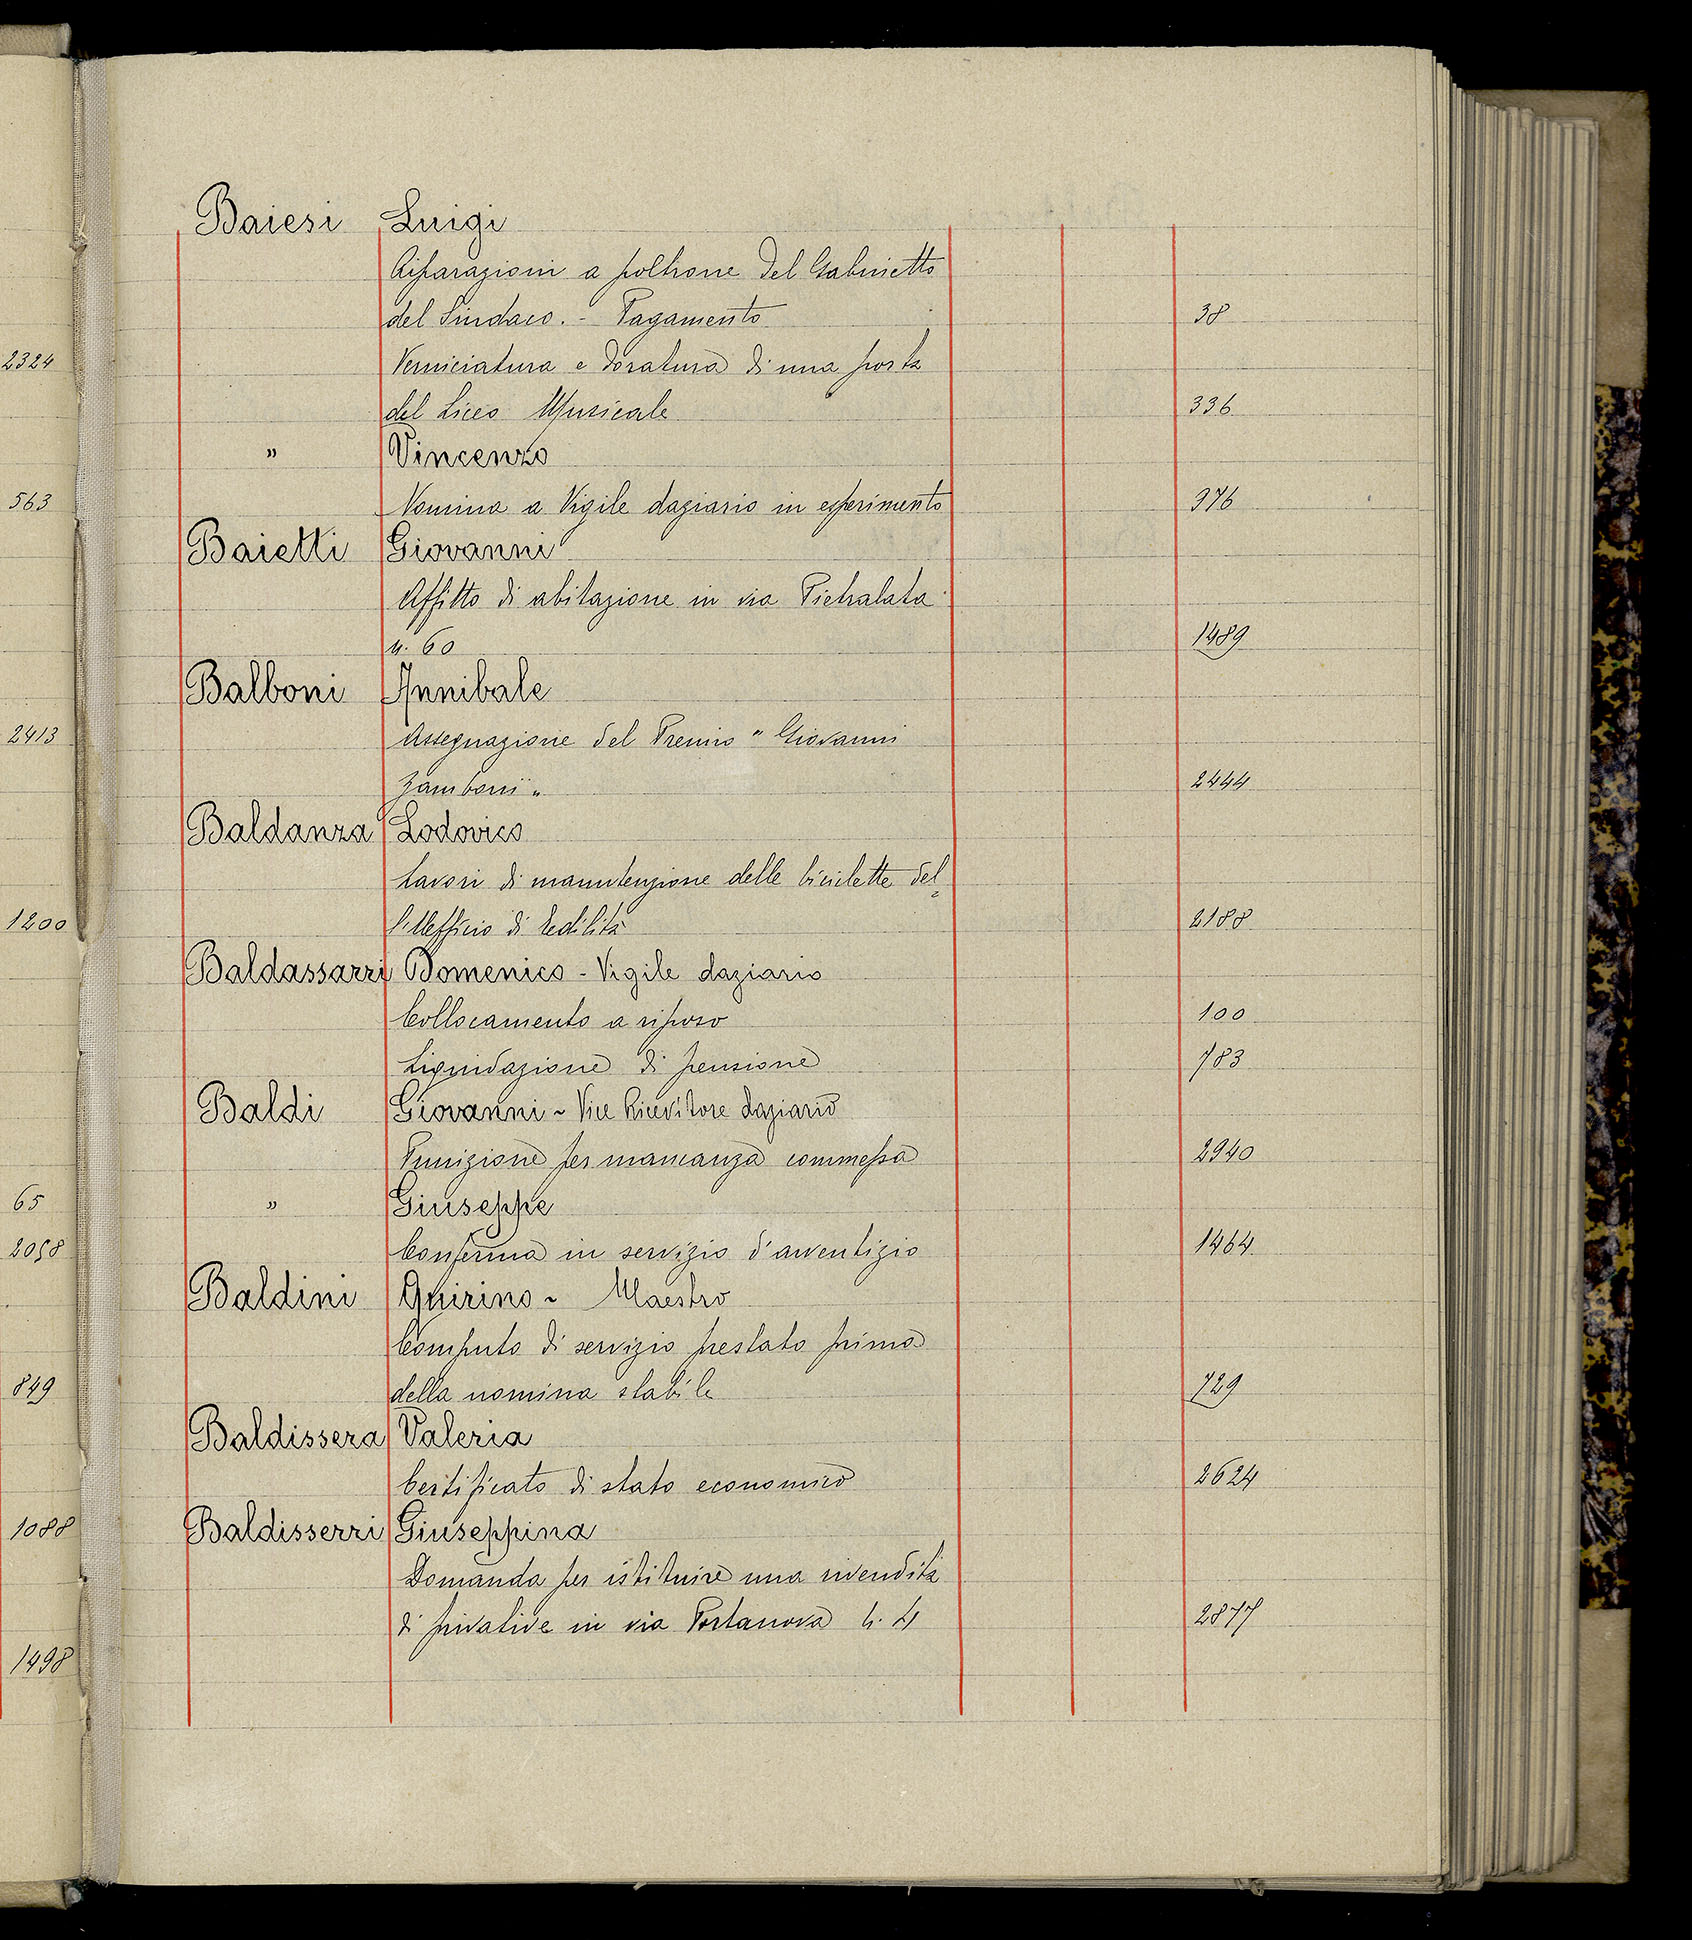 2324
563
2413
1200
65
2058
849
1088
1498
Baiesi Luigi
Riparazioni a poltrone del Gabinetto
del Sindaco. - Pagamento 38
Verniciatura e doratura di una porta
del Liceo Musicale 336
" Vincenzo
Nomina a Vigile daziario in esperimento 376
Baietti Giovanni
Affitto di abitazione in via Pietralata
n. 60 1489
Balboni Annibale
Assegnazione del Premio " Giovanni
Zamboni " 2444
Baldanza Lodovico
Lavori di manutenzione delle biciclette del=
l'Ufficio di Edilità 2188
Baldassarri Domenico - Vigile daziario
Collocamento a riposo 100
Liquidazione di pensione 783
Baldi Giovanni ~ Vice Ricevitore daziario
Punizione per mancanza commessa 2940
" Giuseppe
Conferma in servizio d'avventizio 1464
Baldini Quirino ~ Maestro
Computo di servizio prestato prima
della nomina stabile 729
Baldissera Valeria
Certificato di stato economico 2624
Baldisserri Giuseppina
Domanda per istituire una rivendita
di privative in via Portanova n. 4 2877